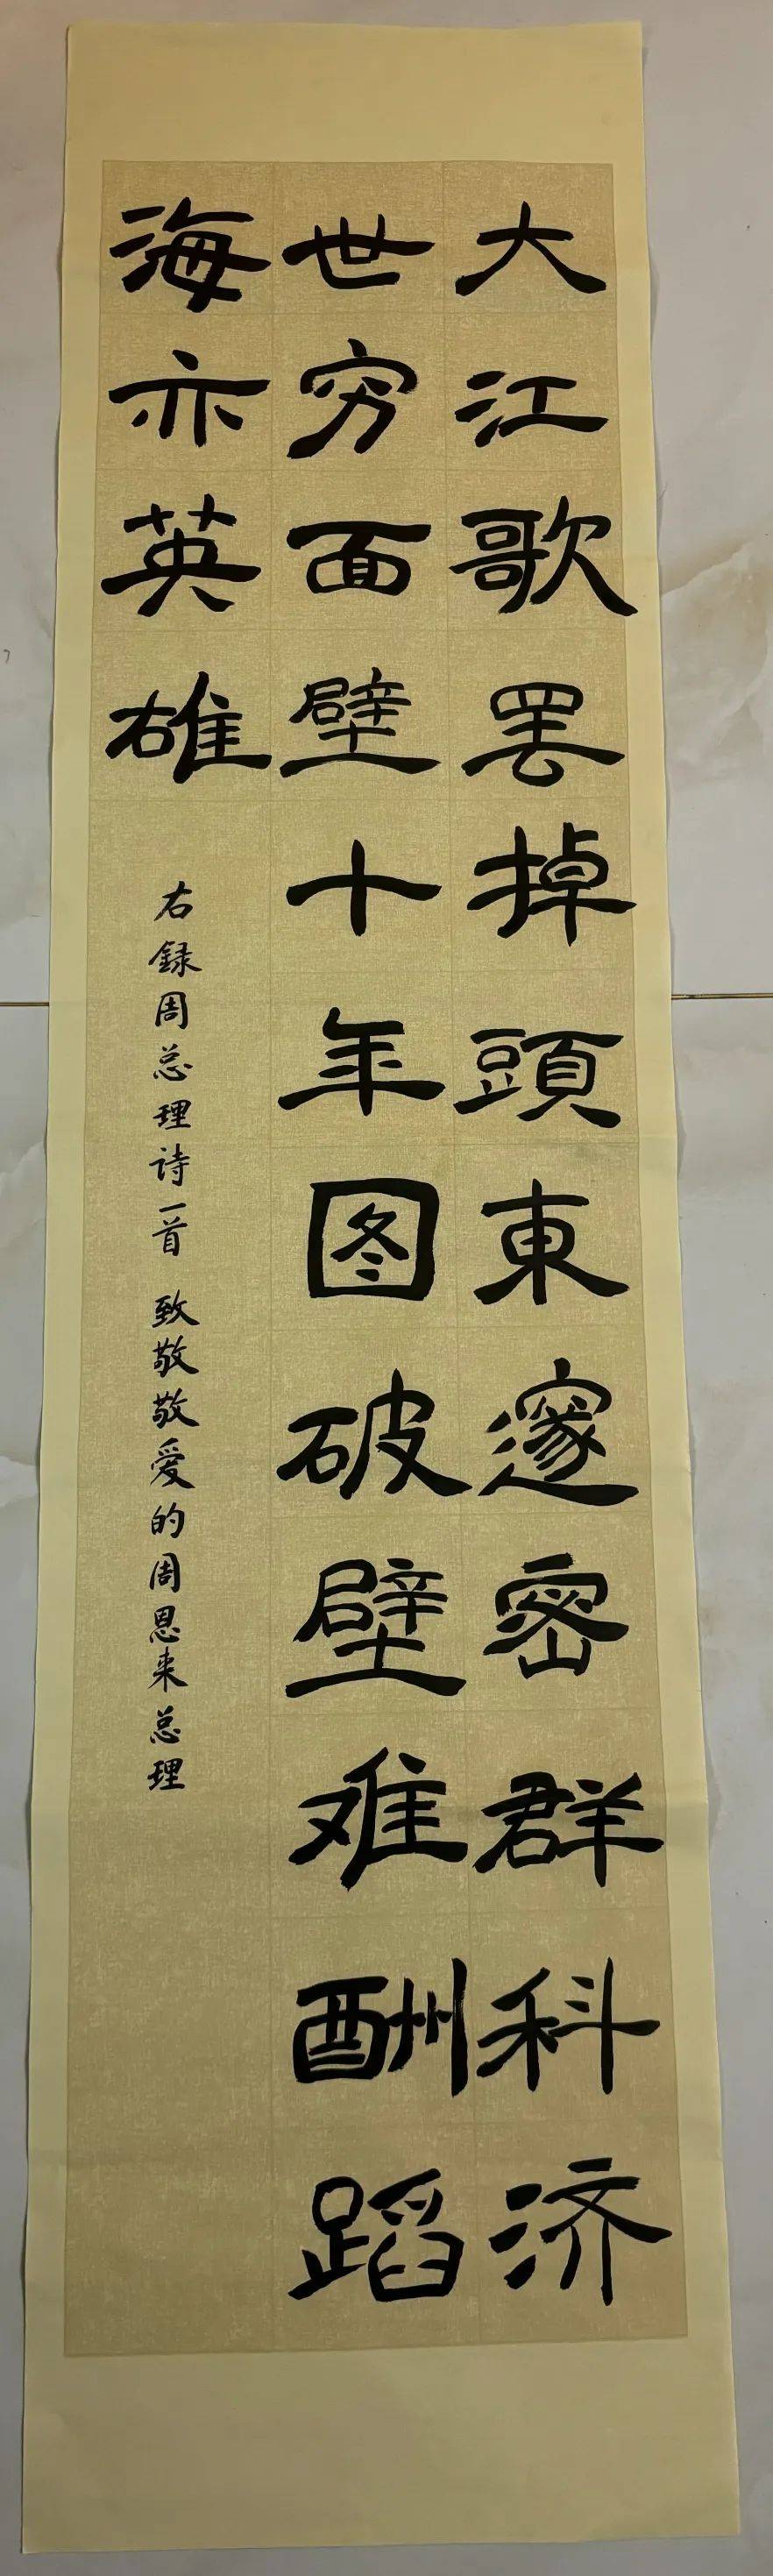 大江歌罢掉頭東邃密群科济
世穷面壁十年图破壁难酬蹈
海亦英雄
右録周总理诗一首 致敬敬爱的周恩来总理